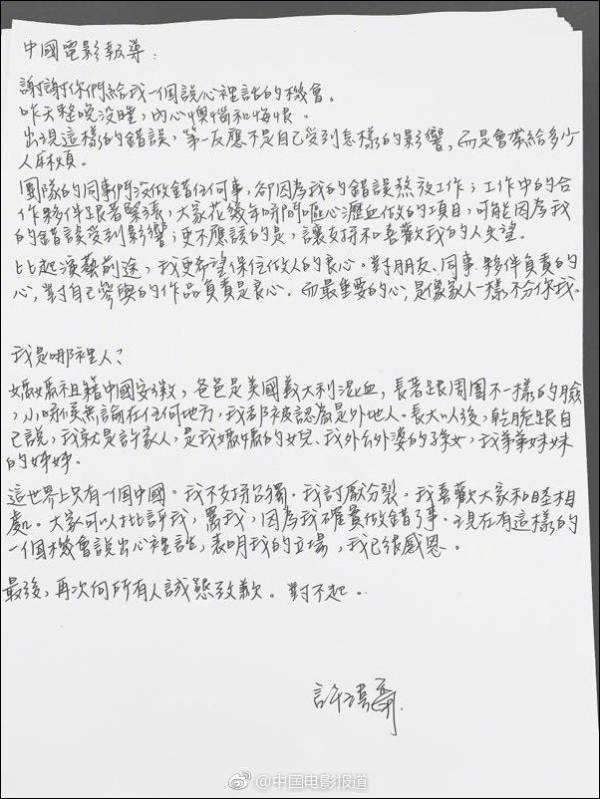 中國電影報導：
謝謝你們給我一個說心裡話的機會。
昨天整晚沒睡，內心懊惱和悔恨。
出現這樣的錯誤，第一反應不是自己受到怎樣的影響，而是會帶給多少
人麻煩。
團隊的同事們沒做錯任何事，卻因為我的錯誤熬夜工作；工作中的合
作夥伴跟著緊張，大家花幾年時間嘔心瀝血做的項目，可能因為我
的錯誤受到影響；更不應該的是，讓支持和喜歡我的人失望。
比起演藝前途，我更希望保住做人的良心。對朋友、同事、夥伴負責的
心，對自己參與的作品負責是良心。而最重要的心，是像家人一樣不分你我。
我是哪裡人？
媽媽祖籍中國安徽，爸爸是美國義大利混血，長著跟周圍不一樣的臉
，小時侯無論在任何地方，我都被認為是外地人。長大以後，乾脆跟自
己說，我就是許家人，是我媽媽的女兒、我外公外婆的孫女，我弟弟妹妹
的姊姊。
這世界上只有一個中國。我不支持台獨。我討厭分裂。我喜歡大家和睦相
處。大家可以批評我，罵我，因為我確實做錯了事。現在有這樣的
一個機會說出心裡話，表明我的立場，我已很感恩。
最後，再次向所有人誠懇致歉。對不起。
許瑋甯
@中国电影报道